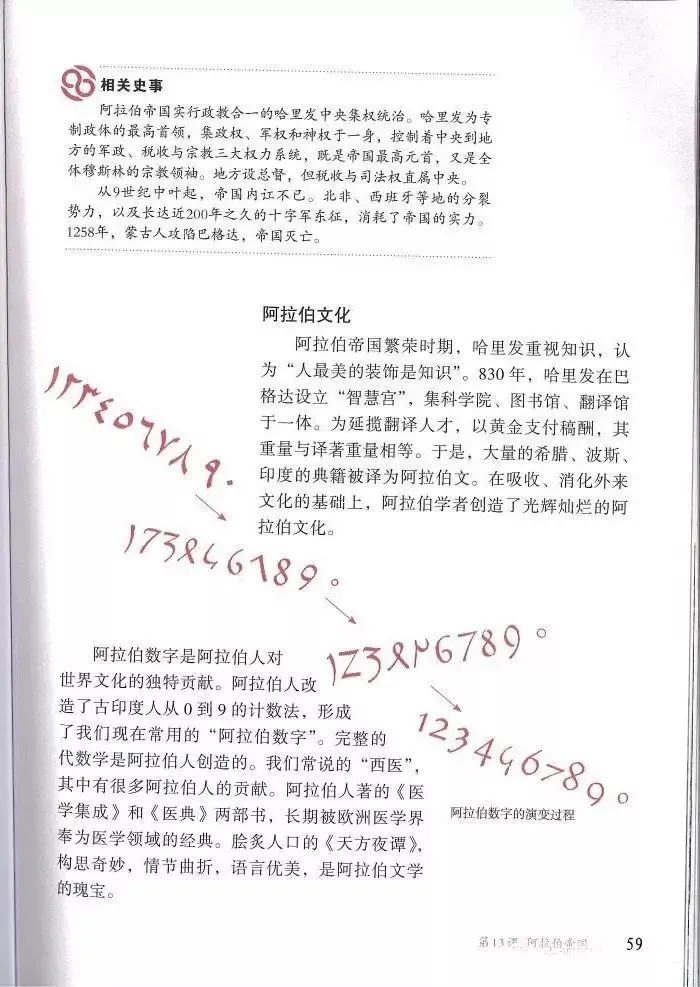 相关史事
阿拉伯帝国实行政教合一的哈里发中央集权统治。哈里发为专
制政体的最高首领，集政权、军权和神权于一身，控制着中央到地
方的军政、税收与宗教三大权力系统，既是帝国最高元首，又是全
体穆斯林的宗教领袖。地方设总督，但税收与司法权直属中央。
从9世纪中叶起，帝国内讧不已。北非、西班牙等地的分裂
势力，以及长达近200年之久的十字军东征，消耗了帝国的实力。
1258年，蒙古人攻陷巴格达，帝国灭亡。
阿拉伯文化
阿拉伯帝国繁荣时期，哈里发重视知识，认
为“人最美的装饰是知识”。830年，哈里发在巴
格达设立“智慧宫”，集科学院、图书馆、翻译馆
于一体。为延揽翻译人才，以黄金支付稿酬，其
重量与译著重量相等。于是，大量的希腊、波斯、
印度的典籍被译为阿拉伯文。在吸收、消化外来
文化的基础上，阿拉伯学者创造了光辉灿烂的阿
拉伯文化。
阿拉伯数字是阿拉伯人对
世界文化的独特贡献。阿拉伯人改
造了古印度人从0到9的计数法，形成
了我们现在常用的“阿拉伯数字”。完整的
代数学是阿拉伯人创造的。我们常说的“西医”，
其中有很多阿拉伯人的贡献。阿拉伯人著的《医
学集成》和《医典》两部书，长期被欧洲医学界
奉为医学领域的经典。脍炙人口的《天方夜谭》，
构思奇妙，情节曲折，语言优美，是阿拉伯文学
的瑰宝。
阿拉伯数字的演变过程
第13课 阿拉伯帝国 59